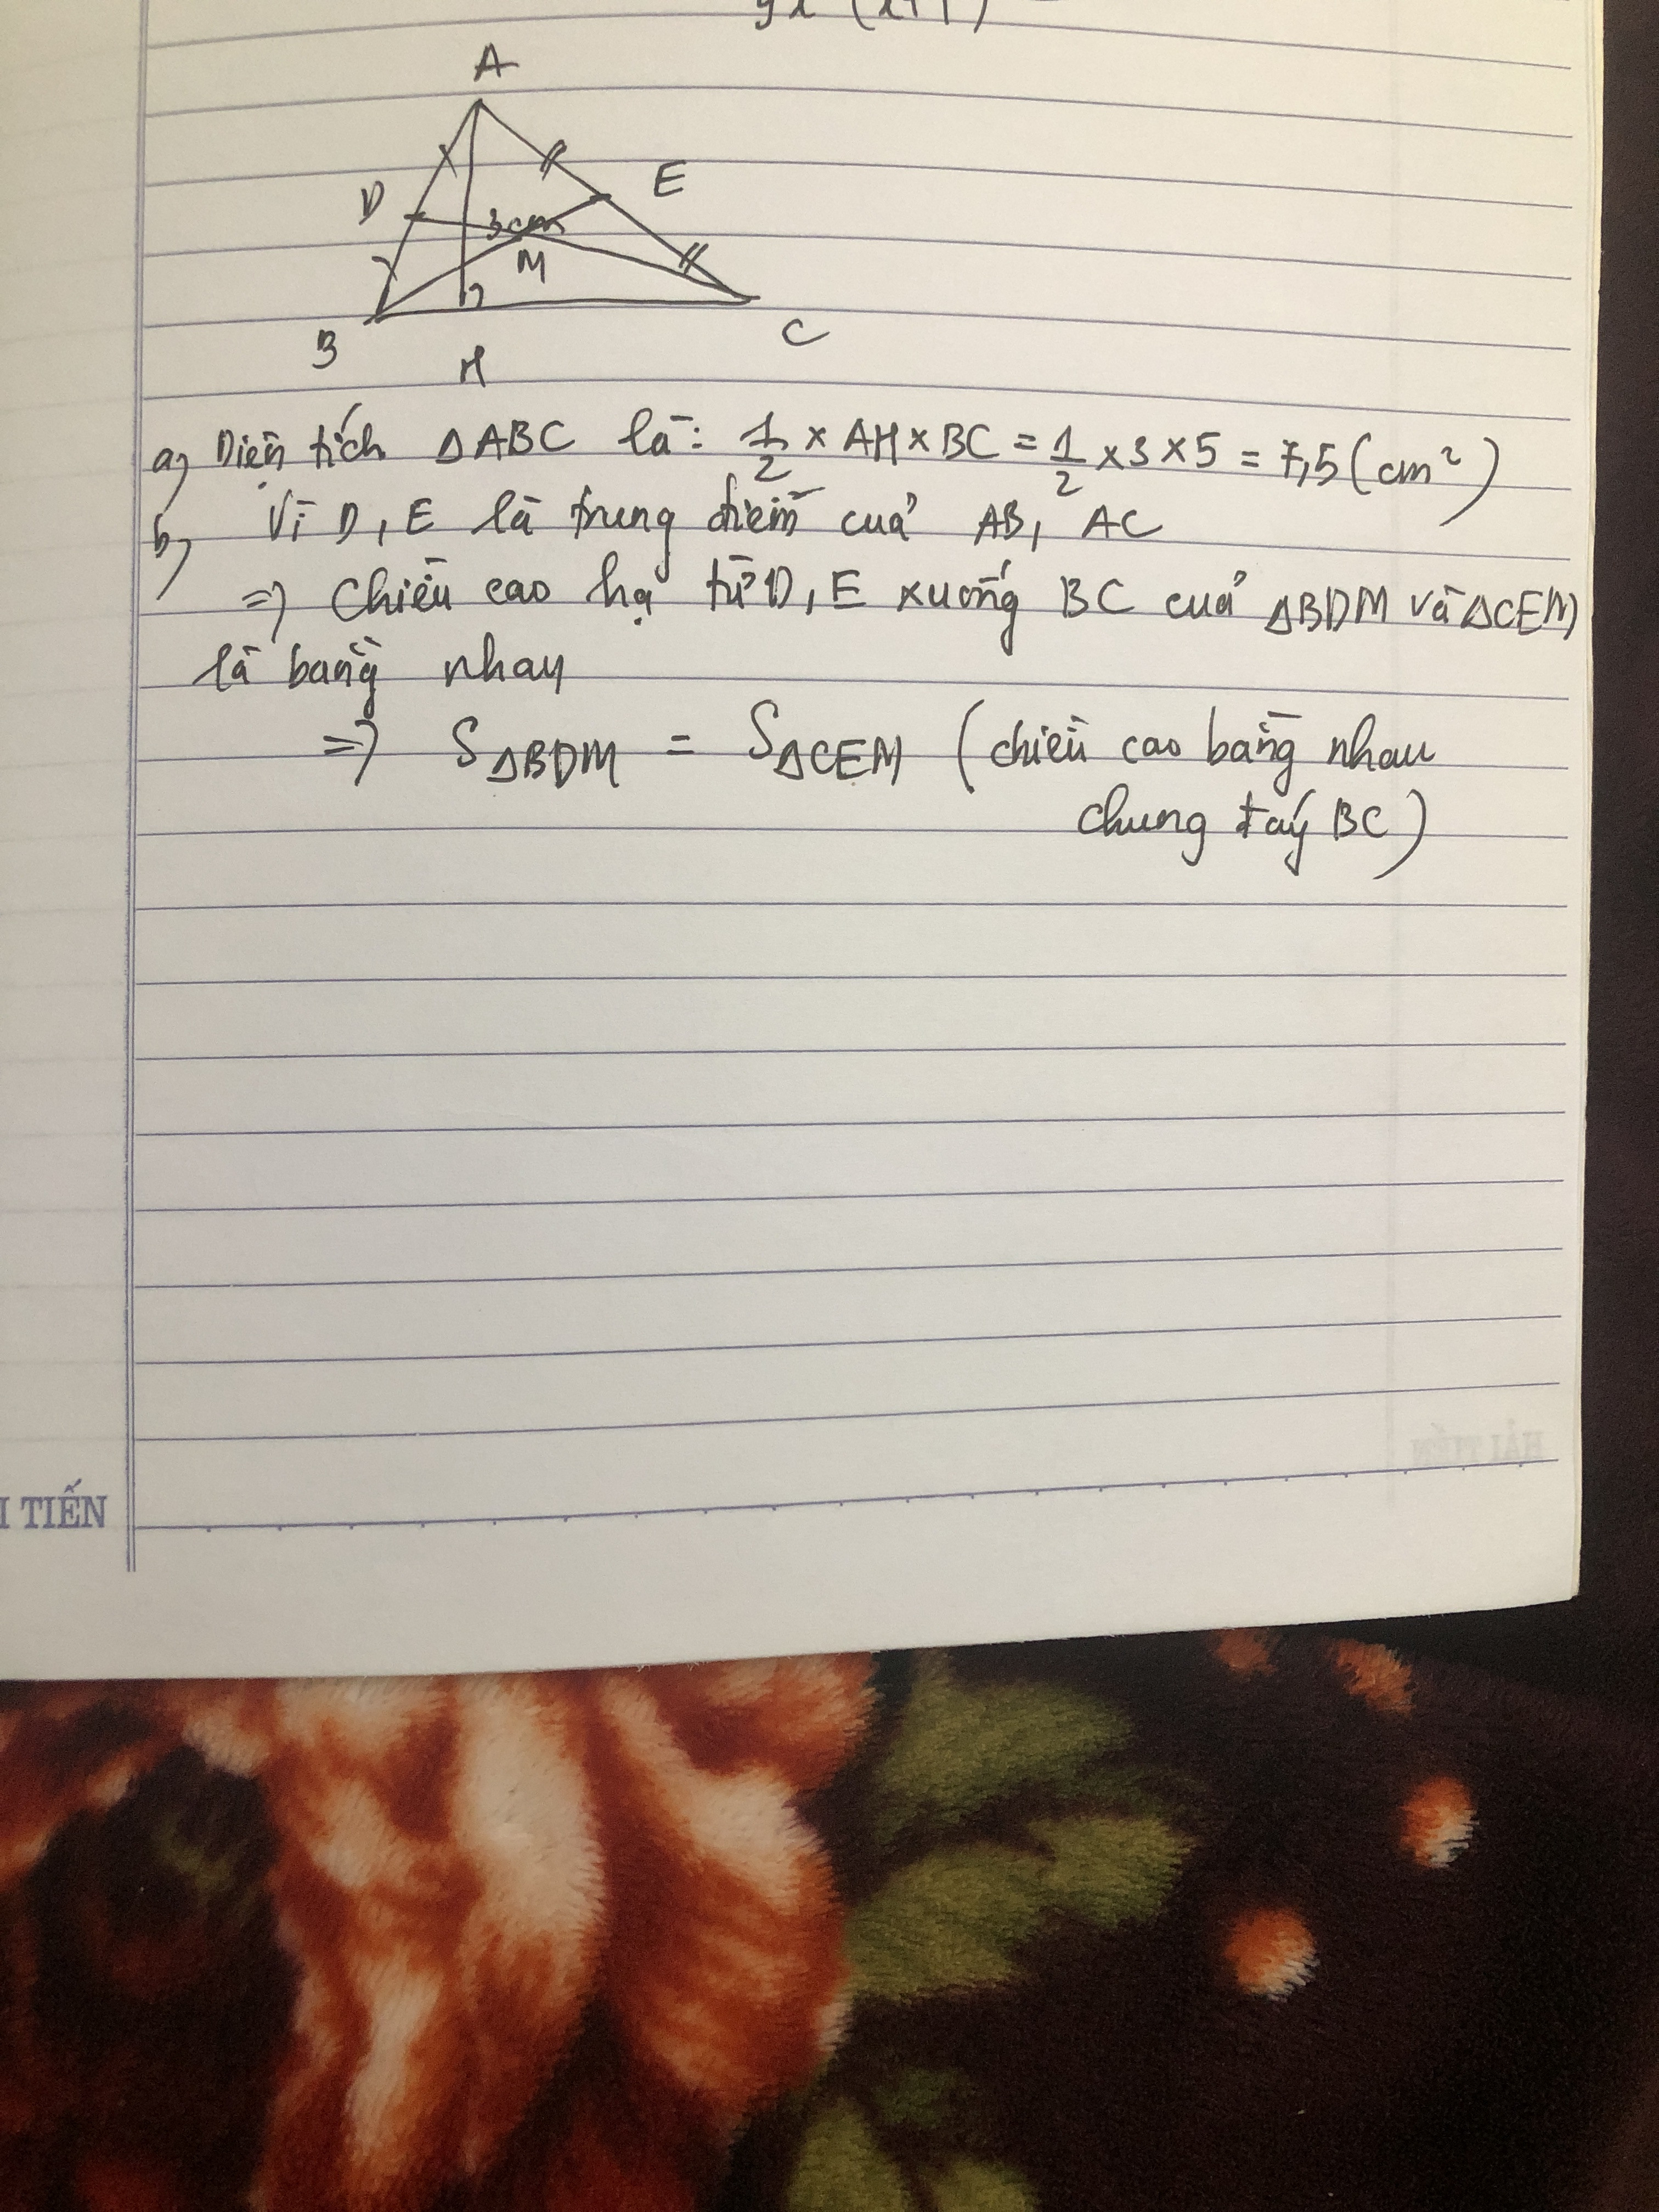 A
D
E
3cm
M
B
H
C
a) Diện tích ΔABC là: 1/2 × AH × BC = 1/2 × 3 × 5 = 7,5 (cm²)
b) Vì D, E là trung điểm của AB, AC
=> Chiều cao hạ từ D, E xuống BC của ΔBDM và ΔCEM
là bằng nhau
=> SΔBDM = SΔCEM (chiều cao bằng nhau
chung đáy BC)
HẢI TIẾN
I TIẾN